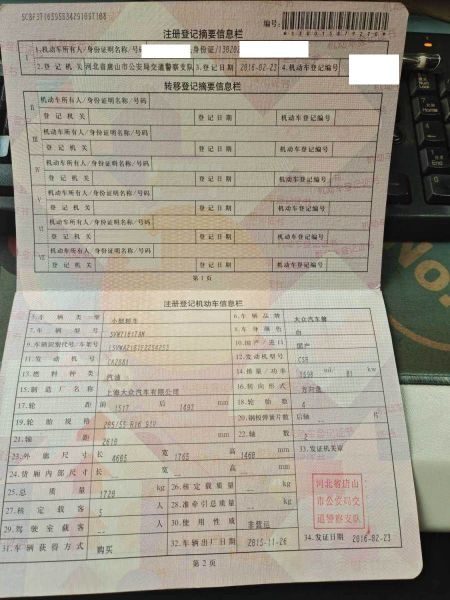 注册登记摘要信息栏
编号:
1.机动车所有人/身份证明名称/号码 身份证/130202
2.登记机关 河北省唐山市公安局交通警察支队 3.登记日期 2016-02-23 4.机动车登记编号
转移登记摘要信息栏
机动车所有人/身份证明名称/号码
登记机关 登记日期 机动车登记编号
III 机动车所有人/身份证明名称/号码
登记机关 登记日期 机动车登记编号
IV 机动车所有人/身份证明名称/号码
登记机关 登记日期 机动车登记编号
V 机动车所有人/身份证明名称/号码
登记机关 登记日期 机动车登记编号
VI 机动车所有人/身份证明名称/号码
登记机关 登记日期 机动车登记编号
VII 机动车所有人/身份证明名称/号码
登记机关 登记日期 机动车登记编号
第1页
注册登记机动车信息栏
5.车辆类型 小型轿车 6.车辆品牌 大众汽车牌
7.车辆型号 8.车身颜色 白
9.车辆识别代号/车架号 10.国产/进口 国产
11.发动机号 12.发动机型号
13.燃料种类 汽油 14.排量/功率 1598 ml/ 81 kw
15.制造厂名称 上海大众汽车有限公司 16.转向形式 方向盘
17.轮距 前 1517 后 1493 mm 18.轮胎数 4
19.轮胎规格 205/55 R16 91V 20.钢板弹簧片数 后轴 -- 片
21.轴距 2610 mm 22.轴数 2
23.外廓尺寸 长 4605 宽 1765 高 1460 mm 33.发证机关章
24.货厢内部尺寸 长 -- 宽 -- 高 -- mm
25.总质量 1720 kg 26.核定载质量 -- kg
27.核定载客 5 人 28.准牵引总质量 -- kg
29.驾驶室载客 -- 人 30.使用性质 非营运
河北省唐山
市公安局交
通警察支队
31.车辆获得方式 购买 32.车辆出厂日期 2015-11-26 34.发证日期 2016-02-23
第2页